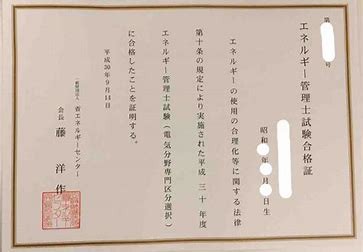 第 号
エネルギー管理士試験合格証
昭和 年 月 日生
エネルギーの使用の合理化等に関する法律
第十条の規定により実施された平成 三十 年度
エネルギー管理士試験(電気分野専門区分選択)
に合格したことを証明する。
平成30年9月14日
一般財団法人 省エネルギーセンター
会長 藤 洋 作